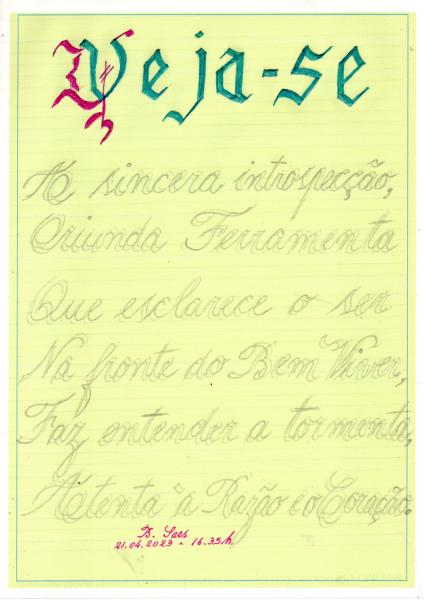 Veja-se
A sincera introspecção,
Oriunda Ferramenta
Que esclarece o ser
Na fronte do Bem Viver,
Faz entender a tormenta,
Atenta à Razão e o Coração.
B. Saes
21.04.2023 - 16.35h